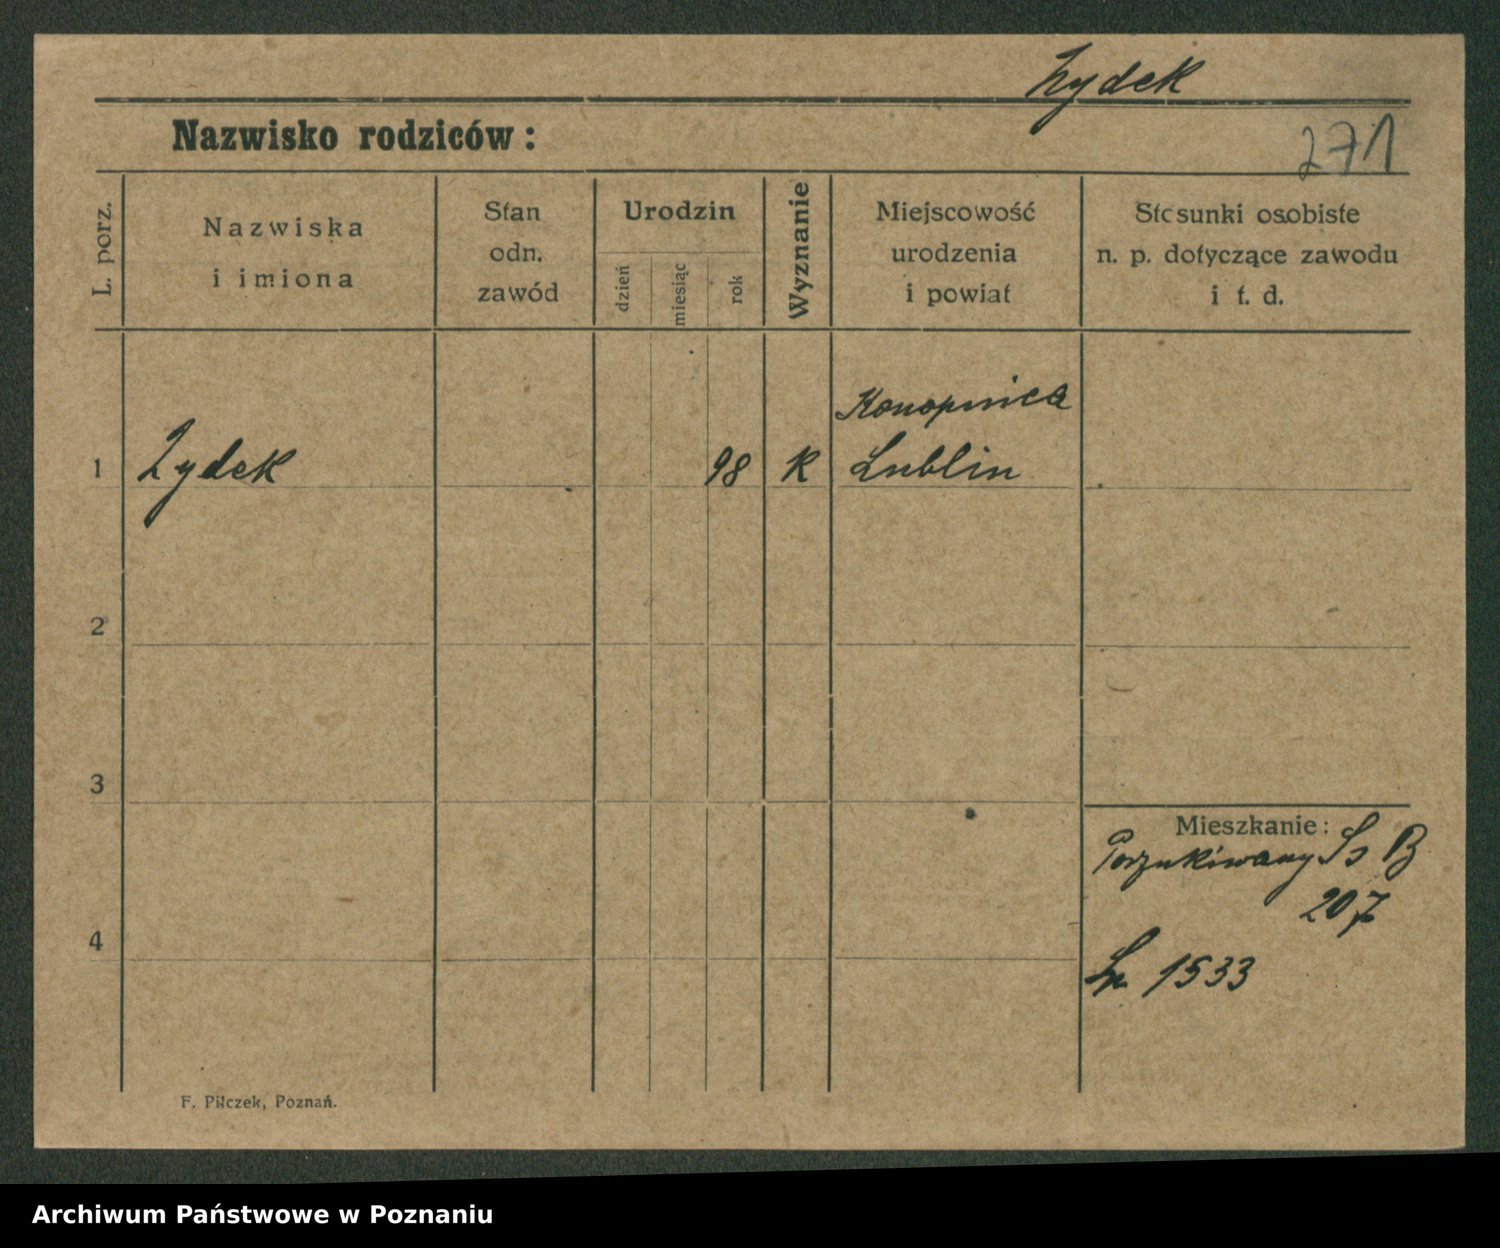 Zydek
Nazwisko rodziców:
271
L. porz.
Nazwiska
i imiona
Stan
odn.
zawód
Urodzin
dzień
miesiąc
rok
Wyznanie
Miejscowość
urodzenia
i powiat
Stosunki osobiste
n. p. dotyczące zawodu
i t. d.
Konopnica
1 Zydek 98 K Lublin
2
3
Mieszkanie:
Poszukiwany Ss B
207
4
Lp 1533
F. Pilczek, Poznań.
Archiwum Państwowe w Poznaniu